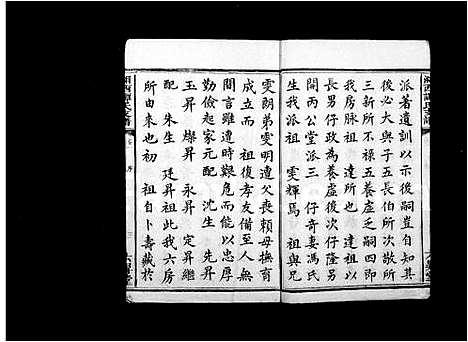 派著遺訓以示後嗣豈自我
後必大于四五長伯所次敬所
三新所不祿五養虛乏嗣四即
我房脉祖 達所也 達祖以
長男仔政為養虛後次仔隆另
開丙公堂派三 仔奇妻馮氏
生我派祖 雯輝馬 祖與兄
雯朗弟雯明遭父喪賴母撫育
成立 祖復孝友備至人無
間言雖遭時艱危而能以忠厚
勤儉起家元配 沈生 先昇
玉昇 燦昇 永昇 定昇繼
配 朱生 廷昇祖此我六房
所由来也初 祖自卜壽藏於